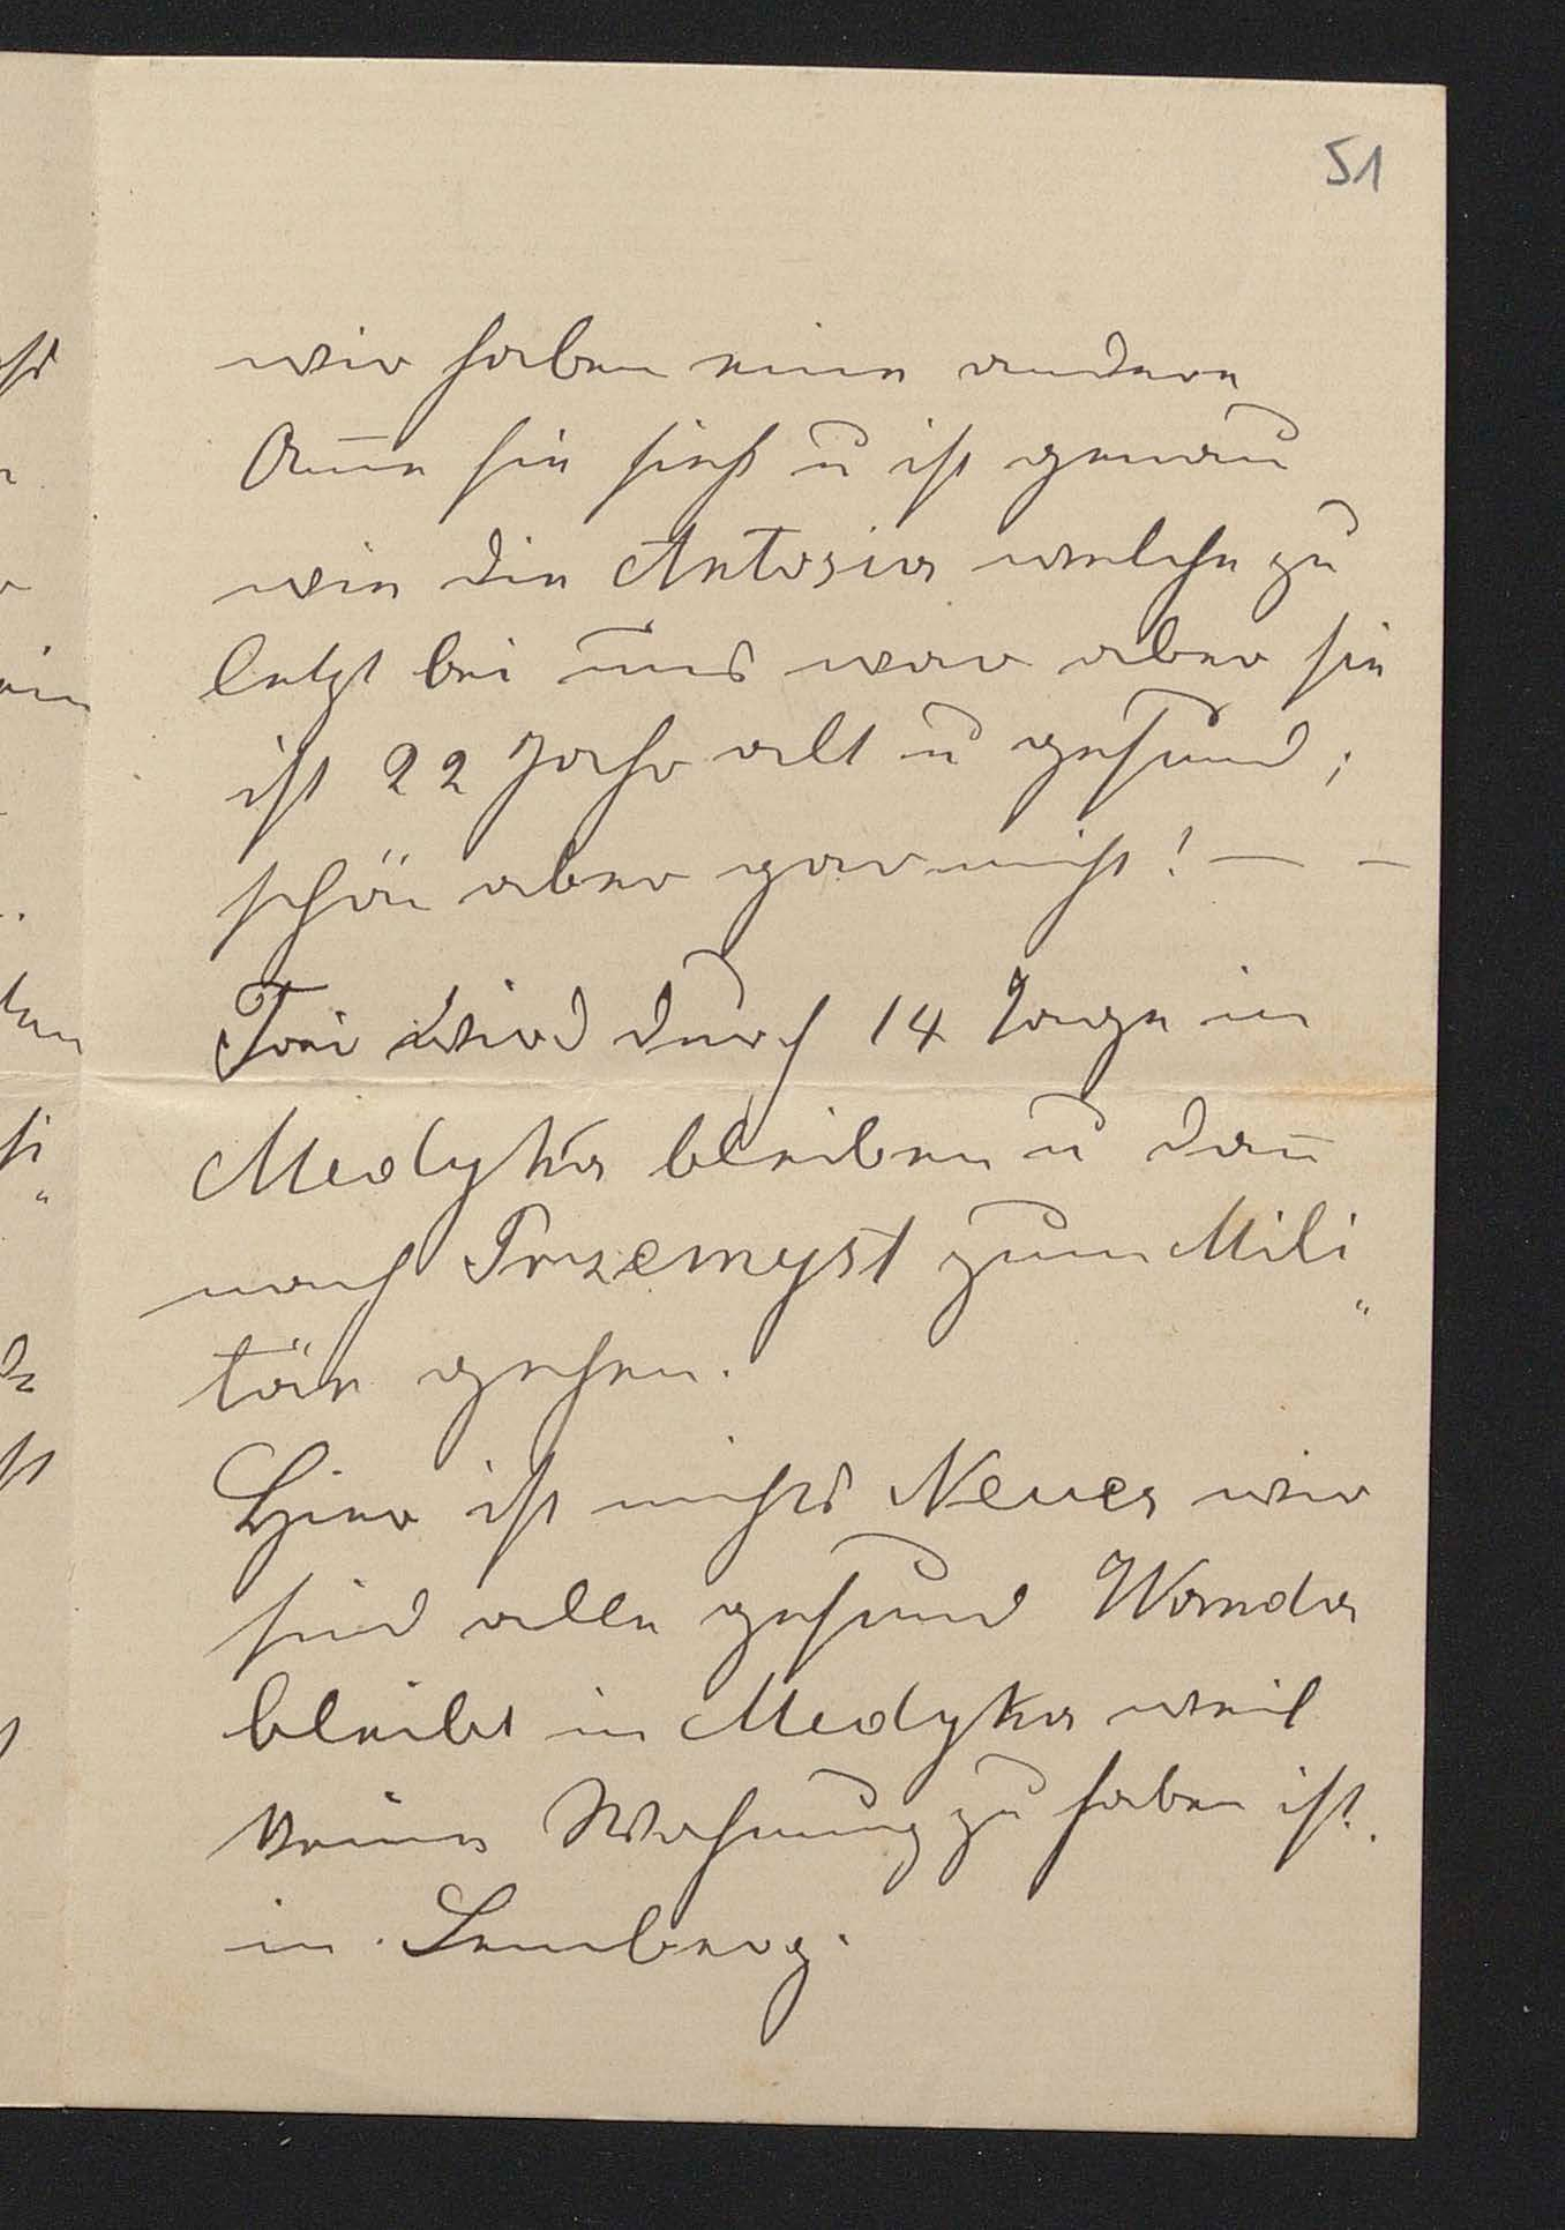 51
wir haben eine andere
Am̅e sie sieht u ist genau
wie die Antosia welche zu
letzt bei uns war aber sie
ist 22 Jahr alt u gesund;
schön aber gar nicht! — —
wird durch 14 Tage in
Medyka bleiben u dan̅
nach Przemyśl zum Mili
tär gehen.
Hier ist nichts Neues wir
sind alle gesund Wanda
bleibt in Medyka weil
keine Wohnung zu haben ist.
in Lemberg.